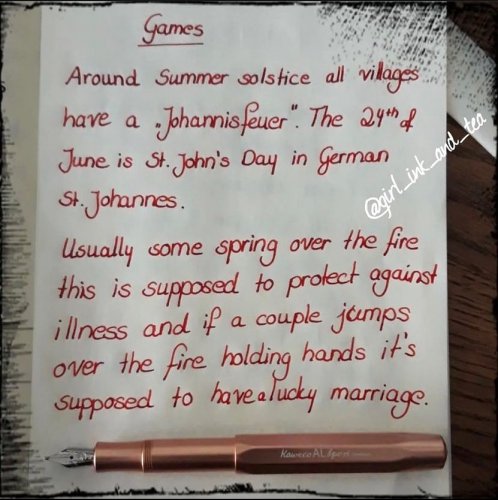 Games
Around Summer solstice all villages
have a „Johannisfeuer". The 24th of
June is St. John's Day in German
St. Johannes.
@girl_ink_and_tea
Usually some spring over the fire
this is supposed to protect against
illness and if a couple jumps
over the fire holding hands it's
supposed to have a lucky marriage.
Kaweco AL Sport